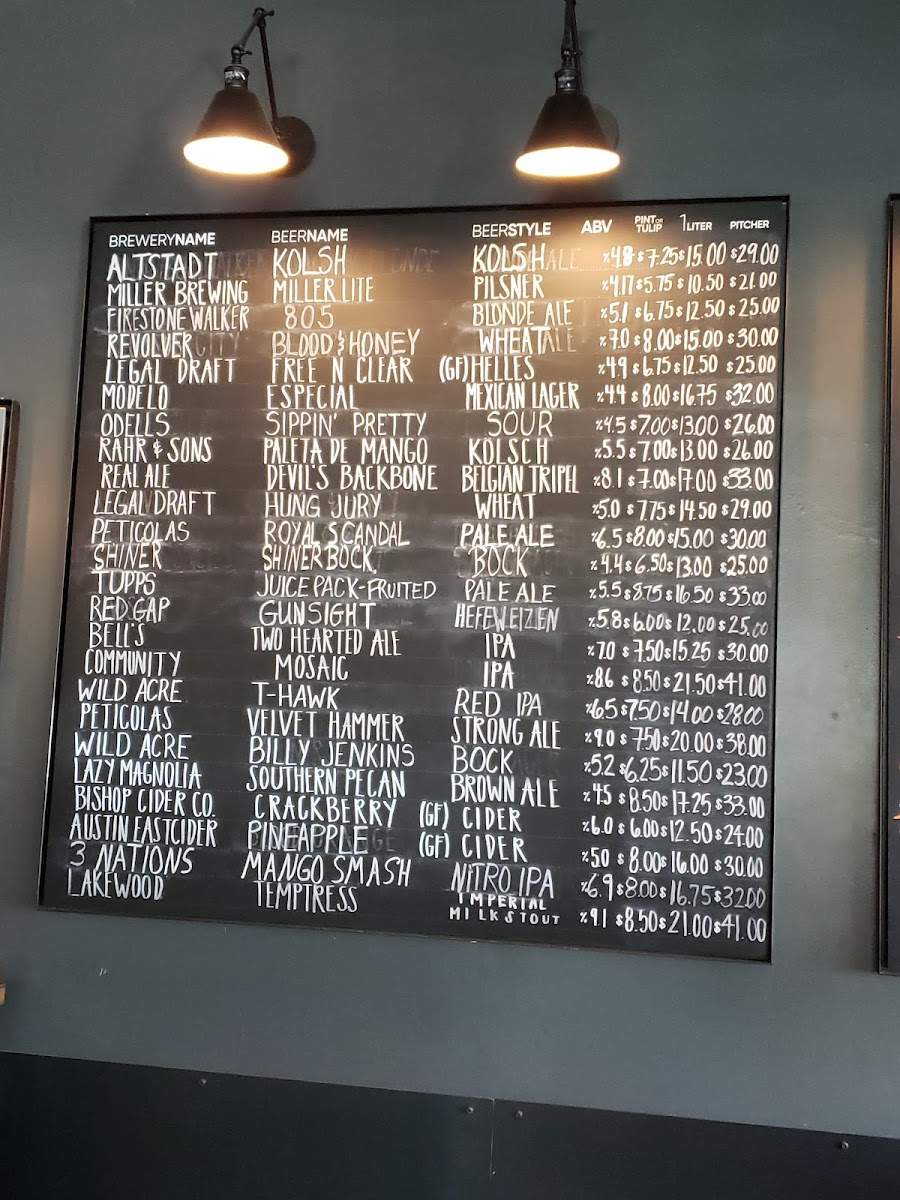 BREWERYNAME BEERNAME BEERSTYLE ABV PINT OR TULIP 1 LITER PITCHER
ALTSTADT KOLSH KOLSH %4.8 $7.25 $15.00 $29.00
MILLER BREWING MILLER LITE PILSNER %4.17 $5.75 $10.50 $21.00
FIRESTONE WALKER 805 BLONDE ALE %5.1 $6.75 $12.50 $25.00
REVOLVER BLOOD & HONEY WHEAT %7.0 $8.00 $15.00 $30.00
LEGAL DRAFT FREE N CLEAR (GF) HELLES %4.9 $6.75 $12.50 $25.00
MODELO ESPECIAL MEXICAN LAGER %4.4 $8.00 $16.75 $32.00
ODELLS SIPPIN' PRETTY SOUR %4.5 $7.00 $13.00 $26.00
RAHR & SONS PALETA DE MANGO KOLSCH %5.5 $7.00 $13.00 $26.00
REAL ALE DEVIL'S BACKBONE BELGIAN TRIPEL %8.1 $7.00 $17.00 $33.00
LEGAL DRAFT HUNG JURY WHEAT %5.0 $7.75 $14.50 $29.00
PETICOLAS ROYAL SCANDAL PALE ALE %6.5 $8.00 $15.00 $30.00
SHINER SHINER BOCK BOCK %4.4 $6.50 $13.00 $25.00
TUPPS JUICE PACK-FRUITED PALE ALE %5.5 $8.75 $16.50 $33.00
RED GAP GUNSIGHT HEFEWEIZEN %5.8 $6.00 $12.00 $25.00
BELL'S TWO HEARTED ALE IPA %7.0 $7.50 $15.25 $30.00
COMMUNITY MOSAIC IPA %8.6 $8.50 $21.50 $41.00
WILD ACRE T-HAWK RED IPA %6.5 $7.50 $14.00 $28.00
PETICOLAS VELVET HAMMER STRONG ALE %9.0 $7.50 $20.00 $38.00
WILD ACRE BILLY JENKINS BOCK %5.2 $6.25 $11.50 $23.00
LAZY MAGNOLIA SOUTHERN PECAN BROWN ALE %4.5 $8.50 $17.25 $33.00
BISHOP CIDER CO. CRACKBERRY (GF) CIDER %6.0 $6.00 $12.50 $24.00
AUSTIN EASTCIDER PINEAPPLE (GF) CIDER %5.0 $8.00 $16.00 $30.00
3 NATIONS MANGO SMASH NITRO IPA %6.9 $8.00 $16.75 $32.00
LAKEWOOD TEMPTRESS IMPERIAL MILK STOUT %9.1 $8.50 $21.00 $41.00